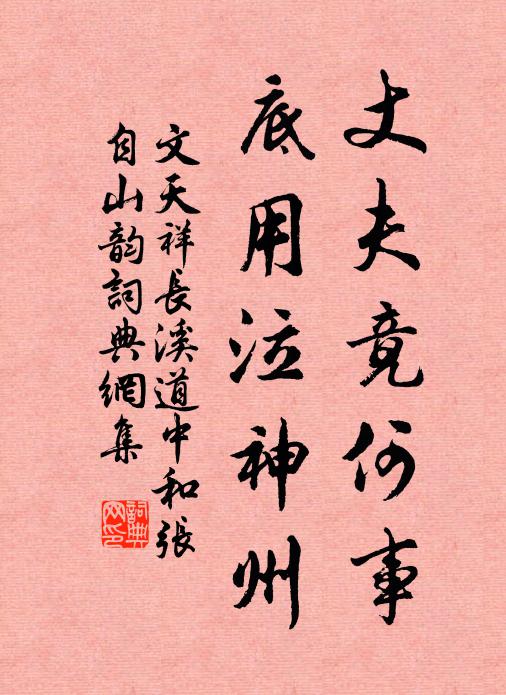 丈夫竟何事
底用泣神州
文天祥長溪道中和張
自山韵詞典網集
詞典
网印